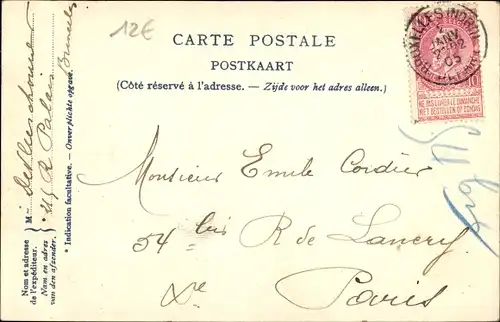 12€
CARTE POSTALE
POSTKAART
(Côté réservé à l'adresse. — Zijde voor het adres alleen.)
BRUXELLES (NORD)
JANV
05
NE PAS LIVRER LE DIMANCHE
NIET BESTELLEN OP ZONDAG
Monsieur Emile Cordier
54 bis R de Lancry
Xe Paris
* Indication facultative. — Onverplichte opgave.
M
R Palais Bruxelles
Nom et adresse
de l'expéditeur.
Nam en adres
van den afzender.